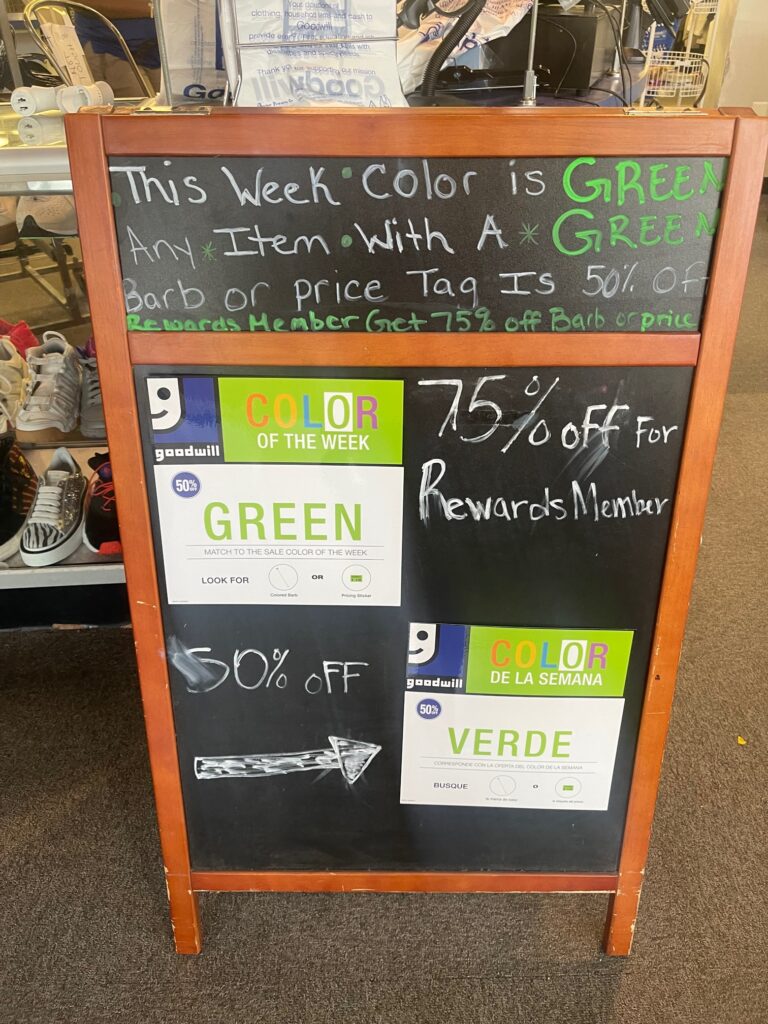 Your donations of
clothing, household items and cash to
Goodwill
Thank you for supporting our mission
Goodwill
This Week Color is GREEN
Any Item With A GREEN
Barb or price Tag Is 50% Off
Rewards Member Get 75% off Barb or price
goodwill
COLOR
OF THE WEEK
50%
OFF
GREEN
MATCH TO THE SALE COLOR OF THE WEEK
LOOK FOR OR
Colored Barb Pricing Sticker
75% off For
Rewards Member
50% off
goodwill
COLOR
DE LA SEMANA
50%
VERDE
CORRESPONDE CON LA OFERTA DEL COLOR DE LA SEMANA
BUSQUE O